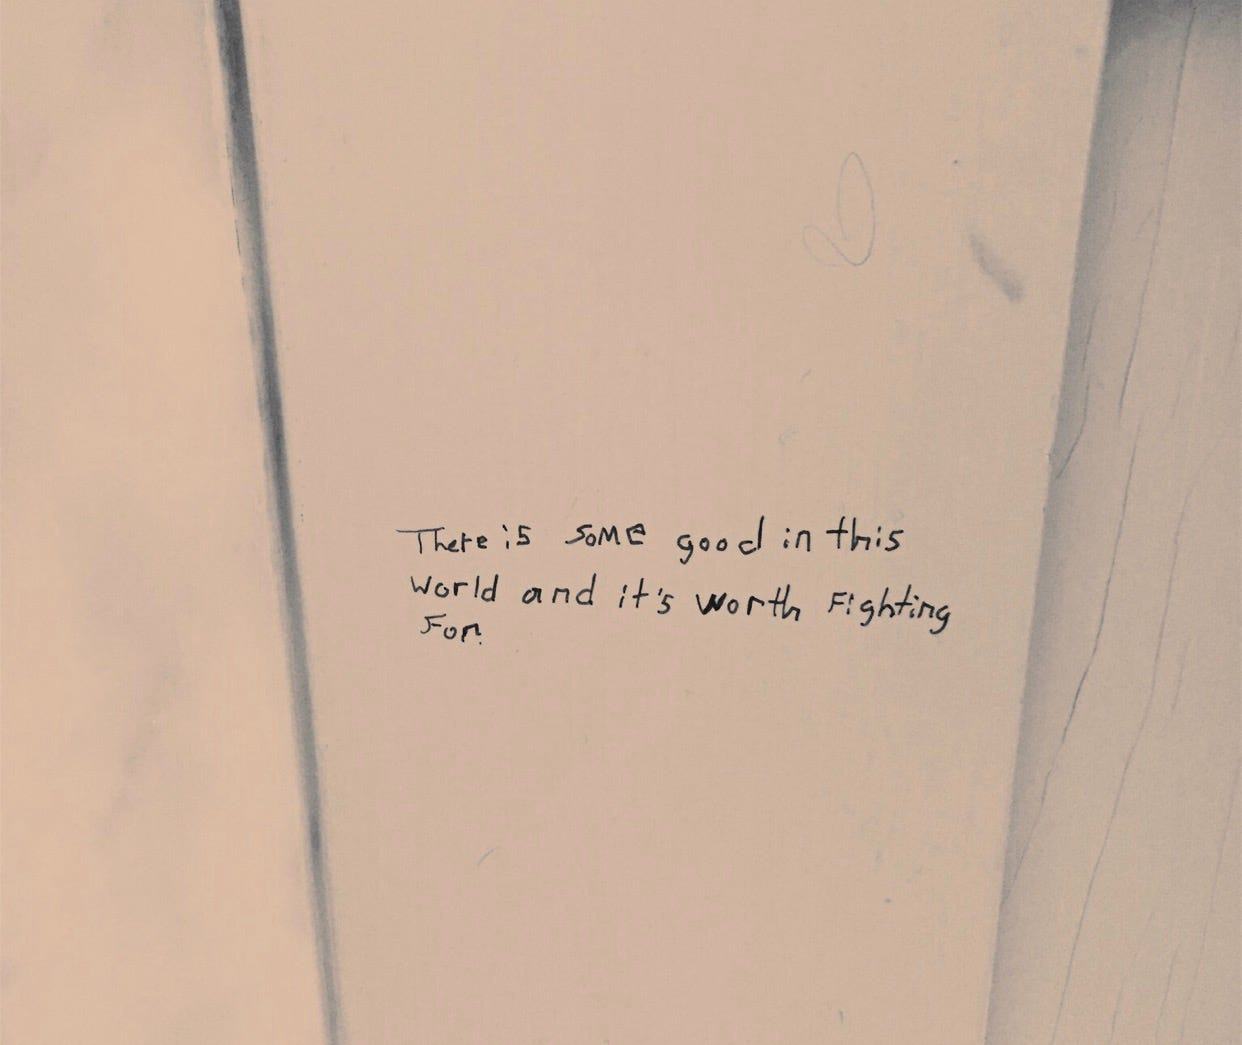 There is SOME good in this
World and it's worth Fighting
For.